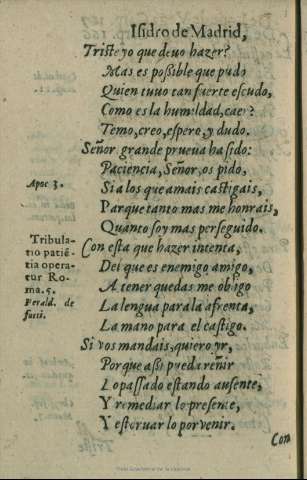 Isidro de Madrid,
Triste yo que deuo hazer?
Mas es posible que pudo
Quien tuuo tan fuerte escudo,
Como es la humildad, caer?
Temo, creo, espero, y dudo.
Señor grande prueua ha sido:
Paciencia, Señor, os pido,
Apoc 3.
Si a los que amais castigais,
Parque tanto mas me honrais,
Quanto soy mas perseguido.
Tribula-
tio patiẽ-
tia opera-
tur Ro-
ma. 5.
Con esta que hazer intenta,
Del que es enemigo amigo,
A tener quedas me obligo
de
La lengua para la afrenta,
La mano para el castigo.
Si vos mandais, quiero yr,
Porque assi pueda reñir
Lo passado estando ausente,
Y remediar lo presente,
Y estoruar lo por venir.
Con